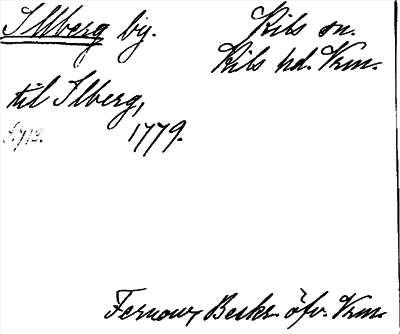 Illberg by. Kils sn.
Kils hd. Vrm.
til Ilberg,
s. 712. 1779.
Fernow, Beskr. öfv. Vrm.